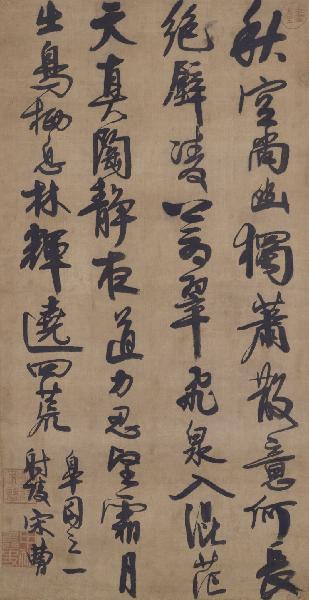 秋空尚幽獨蕭散意何長
絕壁凌翠飛泉入混茫
天真陶靜夜道力忍堅霜月
出鳥栖息林輝遶四荒
皐園之一
射陵宋曹